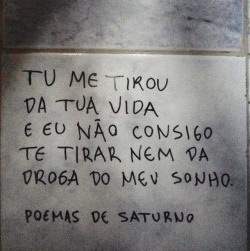 TU ME TIROU
DA TUA VIDA
E EU NÃO CONSIGO
TE TIRAR NEM DA
DROGA DO MEU SONHO.
POEMAS DE SATURNO